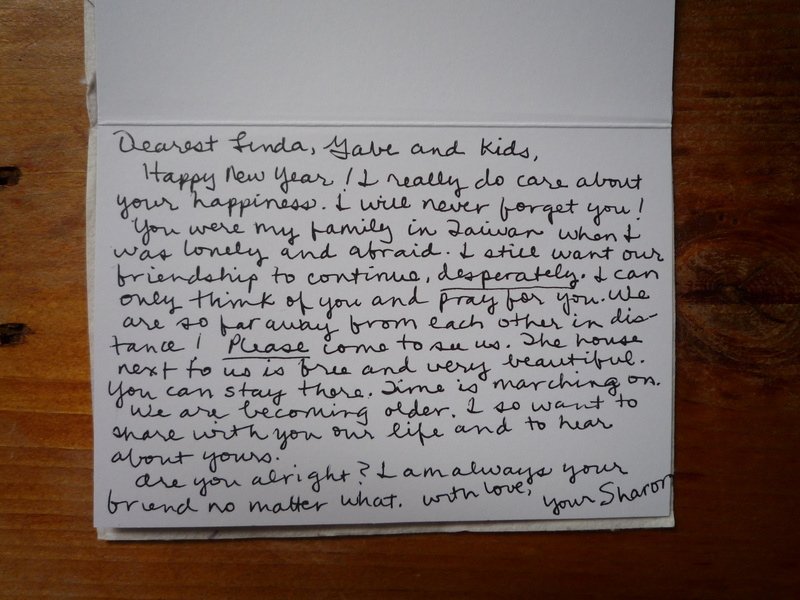 Dearest Linda, Gabe and Kids,
Happy New Year! I really do care about
your happiness. I will never forget you!
You were my family in Taiwan when I
was lonely and afraid. I still want our
friendship to continue, desperately. I can
only think of you and pray for you. We
are so far away from each other in dis-
tance! Please come to see us. The house
next to us is free and very beautiful.
You can stay there. Time is marching on.
We are becoming older. I so want to
share with you our life and to hear
about yours.
Are you alright? I am always your
friend no matter what. With love,
your Sharon